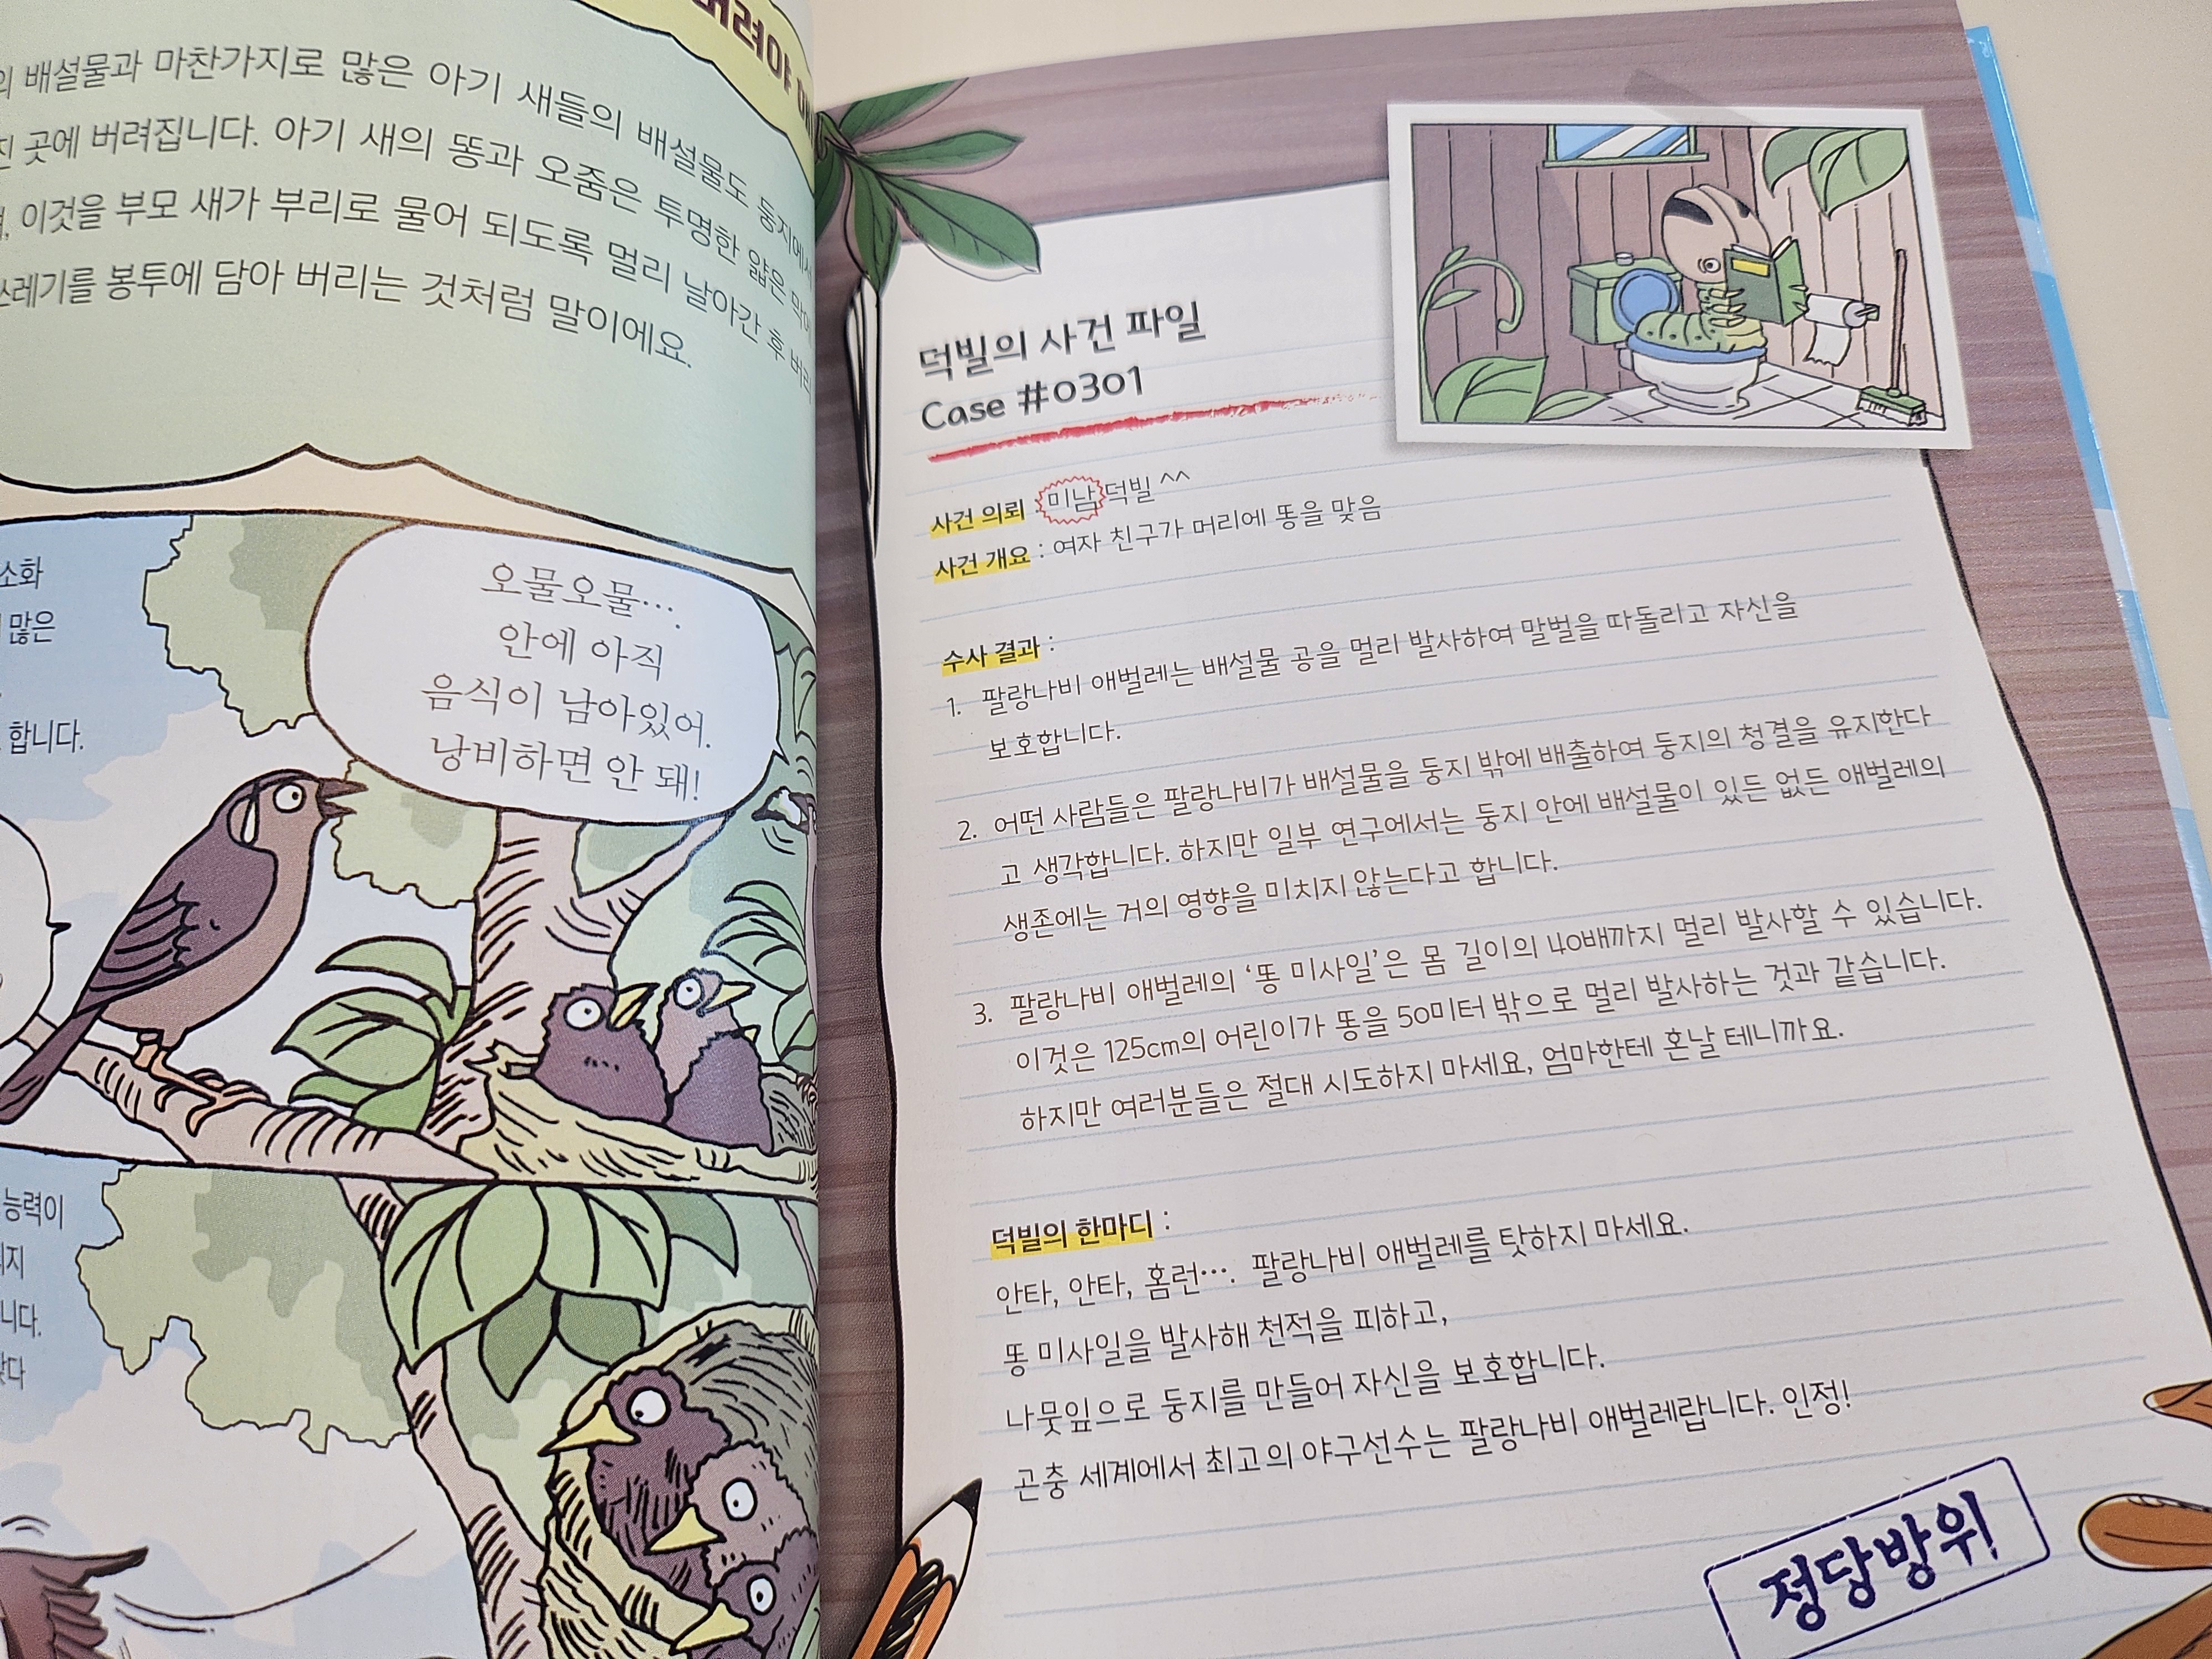 배설물과 마찬가지로 많은 아기 새들의 배설물도 둥지에서
곳에 버려집니다. 아기 새의 똥과 오줌은 투명한 얇은 막에
이것을 부모 새가 부리로 물어 되도록 멀리 날아간 후 버리
쓰레기를 봉투에 담아 버리는 것처럼 말이에요.
소화
많은
합니다.
오물오물….
안에 아직
음식이 남아있어.
낭비하면 안 돼!
능력이
니다.
덕빌의 사건 파일
Case #0301
사건 의뢰 : 미남 덕빌 ^^
사건 개요 : 여자 친구가 머리에 똥을 맞음
수사 결과 :
1. 팔랑나비 애벌레는 배설물 공을 멀리 발사하여 말벌을 따돌리고 자신을
보호합니다.
2. 어떤 사람들은 팔랑나비가 배설물을 둥지 밖에 배출하여 둥지의 청결을 유지한다
고 생각합니다. 하지만 일부 연구에서는 둥지 안에 배설물이 있든 없든 애벌레의
생존에는 거의 영향을 미치지 않는다고 합니다.
3. 팔랑나비 애벌레의 ‘똥 미사일’은 몸 길이의 40배까지 멀리 발사할 수 있습니다.
이것은 125cm의 어린이가 똥을 50미터 밖으로 멀리 발사하는 것과 같습니다.
하지만 여러분들은 절대 시도하지 마세요, 엄마한테 혼날 테니까요.
덕빌의 한마디 :
안타, 안타, 홈런…. 팔랑나비 애벌레를 탓하지 마세요.
똥 미사일을 발사해 천적을 피하고,
나뭇잎으로 둥지를 만들어 자신을 보호합니다.
곤충 세계에서 최고의 야구선수는 팔랑나비 애벌레랍니다. 인정!
정당방위